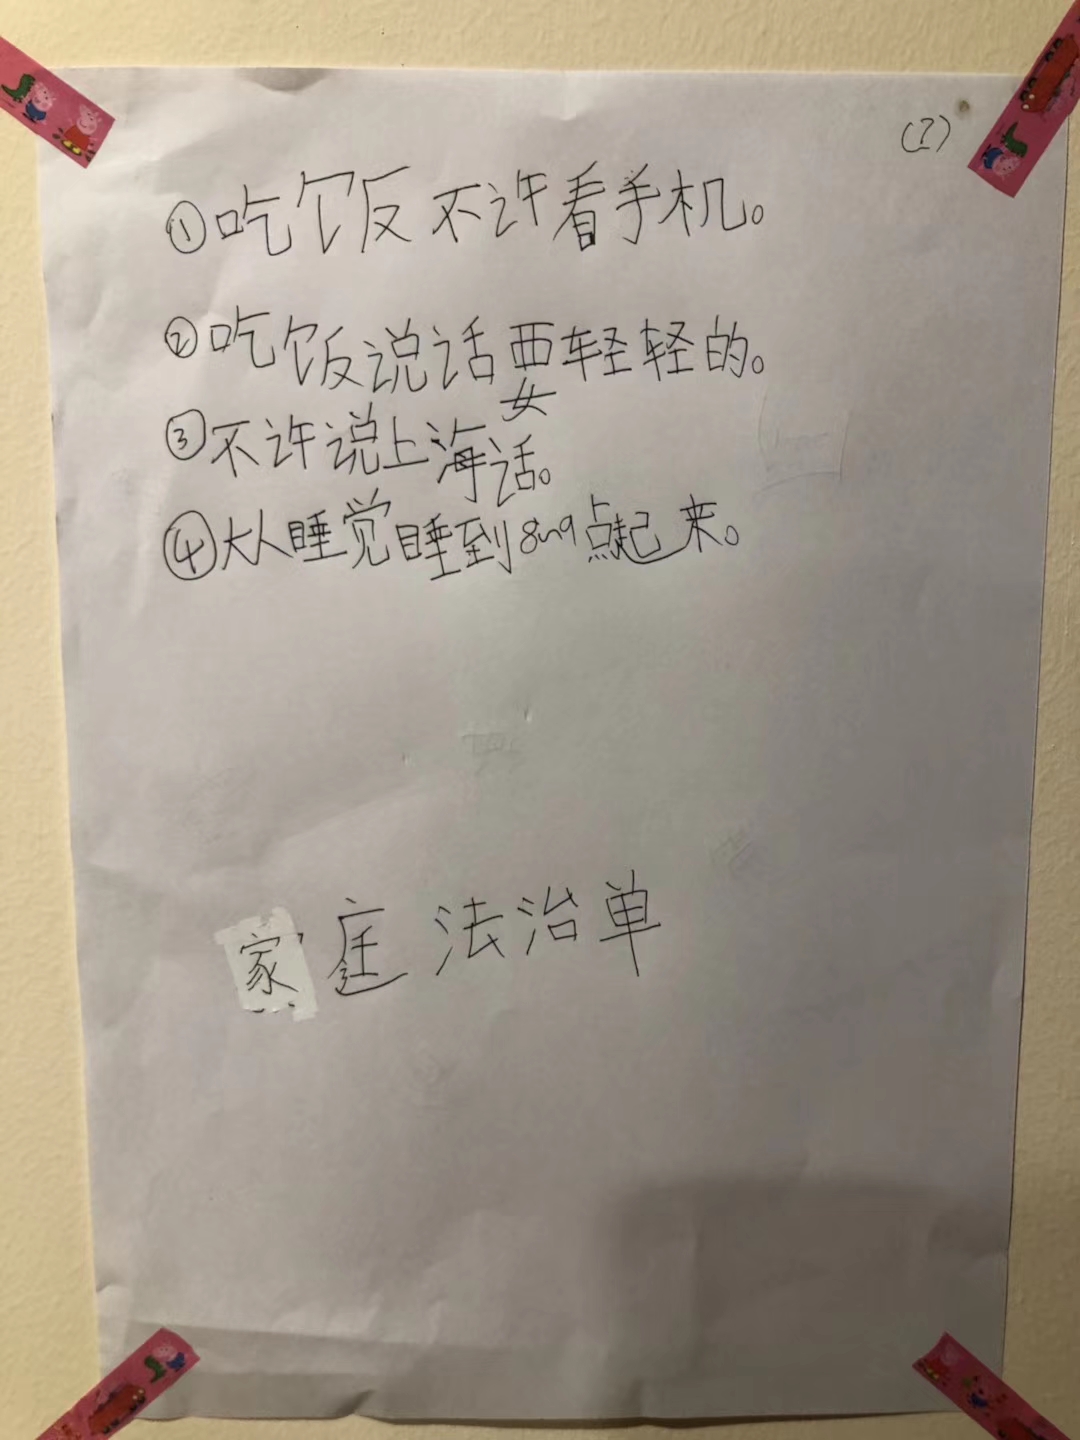 (1)
①吃饭不许看手机。
②吃饭说话要轻轻的。
③不许说上海话。
④大人睡觉睡到8~9点起来。
家庭法治单